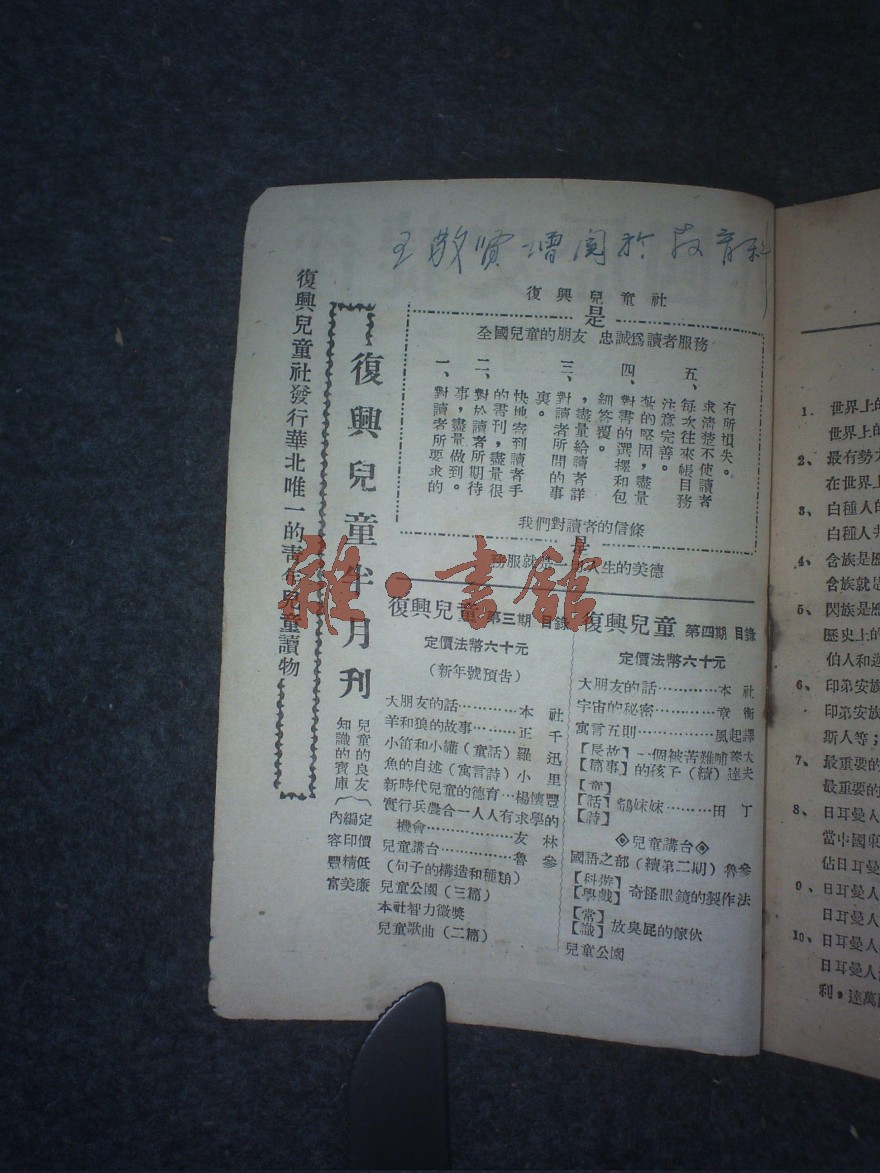 王敬贤增阅於教育科
復興兒童社
是
全國兒童的朋友　忠誠爲讀者服務
一、對讀者所要求的
事，盡量做到。
二、對於讀者所期待
的書刊，盡量很
快地寄到讀者手
裏。
三、對讀者所問的事
，盡量給讀者詳
細答覆。
四、對書的選擇和包
紮的堅固，盡量
注意完善。
五、每次往來帳目務
求清楚不使讀者
有所損失。
我們對讀者的信條
是
務服就是
人生的美德
復興兒童社發行華北唯一的青年兒童讀物
復興兒童半月刊
兒童的良友
知識的寶庫
定價低廉
編印精美
內容豐富
復興兒童　第三期　目錄
定價法幣六十元
（新年號預告）
大朋友的話…………本　社
羊和狼的故事………正　千
小笛和小罐（童話）羅　迅
魚的自述（寓言詩）小　里
新時代兒童的德育…楊懷豐
實行兵農合一人人有求學的
機會…………友　林
兒童講台……………魯　參
（句子的構造和種類）
兒童公園（三篇）
本社智力徵獎
兒童歌曲（二篇）
復興兒童　第四期　目錄
定價法幣六十元
大朋友的話…………本　社
宇宙的秘密…………章　衡
寓言五則……………風起譯
【長故】一個被苦難哺養大
【篇事】的孩子（續）達夫
【童】
【話】鷸妹妹………田　丁
【詩】
◈兒童講台◈
國語之部（續第二期）魯參
【科遊】
【學戲】奇怪眼鏡的製作法
【常】
【識】放臭屁的傢伙
兒童公園
雅·書館
1、世界上的
世界上的
2、最有勢力
在世界上
3、白種人的
白種人共
4、含族是歷
含族就是
5、閃族是歷
歷史上的
伯人和
6、印第安族
印第安族
斯人等；
7、最重要的
最重要的
8、日耳曼人
當中國東
佔日耳曼
9、日耳曼人
日耳曼人
10、日耳曼人
日耳曼人
利，達萬